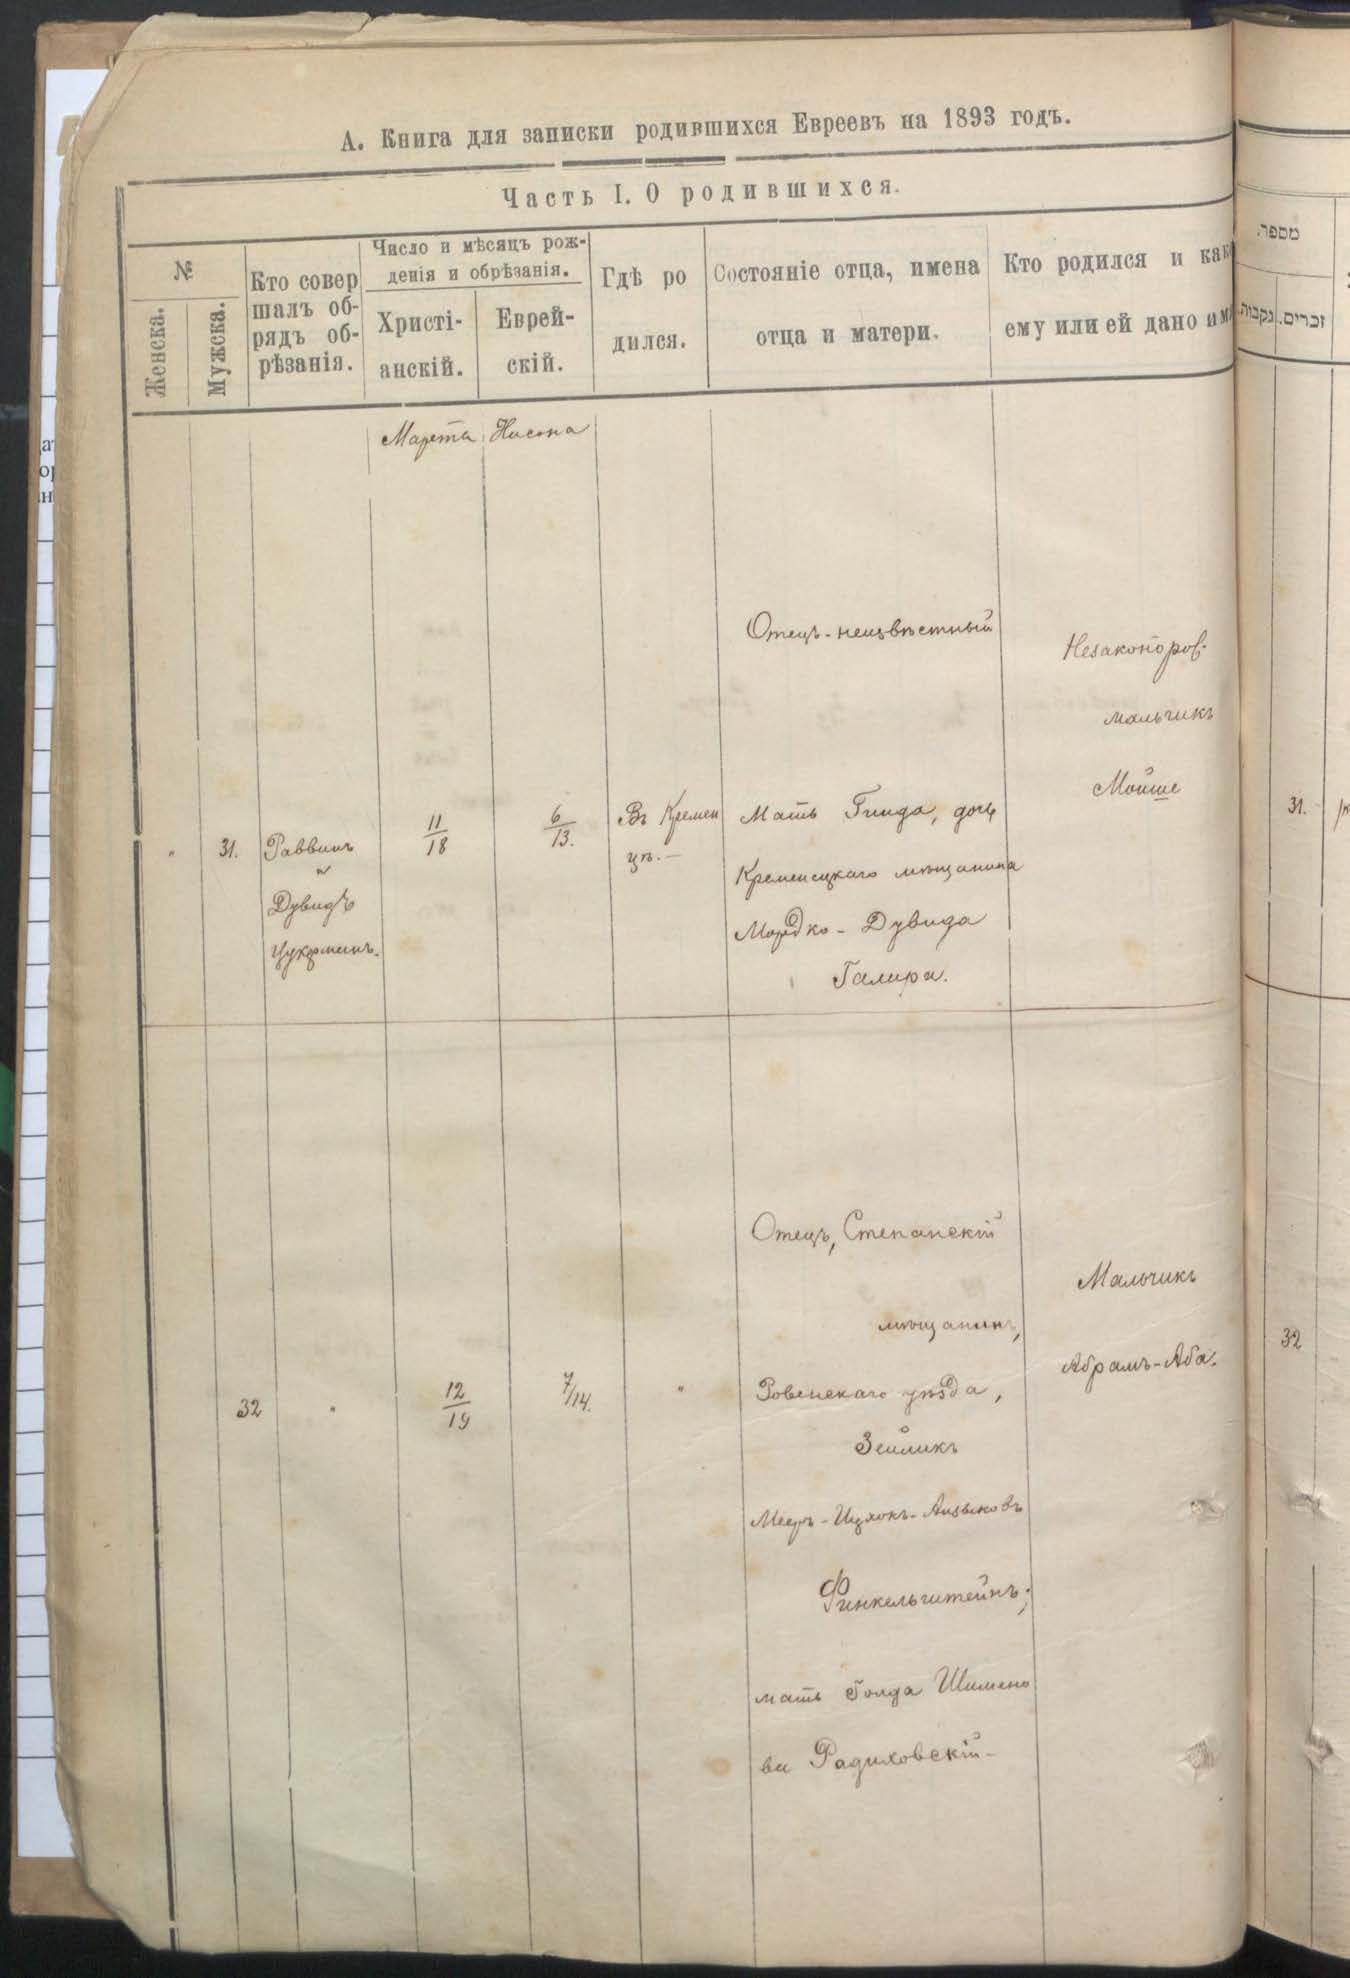 А. Книга для записки родившихся Евреевъ на 1893 годъ.
Часть I. О родившихся.
№
Женска.
Мужска.
Кто совер
шалъ об-
рядъ об-
рѣзанія.
Число и мѣсяцъ рож-
денія и обрѣзанія.
Христі-
анскій.
Еврей-
скій.
Гдѣ ро
дился.
Состояніе отца, имена
отца и матери.
Кто родился и как
ему или ей дано им
מספר.
נקבות.
זכרים.
Марта
Нисона
"
31.
Раввинъ
и
Дувидъ
Цукерманъ.
11
18
6
13.
Въ Кремен
цѣ.—
Отецъ-неизвѣстный
Мать Гинда, дочь
Кременецкаго мѣщанина
Мордко-Дувида
Галира.
Незаконоров.
мальчикъ
Мойше
31.
32
"
12
19
7/14.
"
Отецъ, Степанскій
мѣщанинъ,
Ровенскаго уѣзда,
Зейликъ
Мееръ-Ицхокъ-Айзыковъ
Финкельштейнъ;
мать Голда Шимено
ва Радиховскій-
Мальчикъ
Абрамъ-Аба.
32